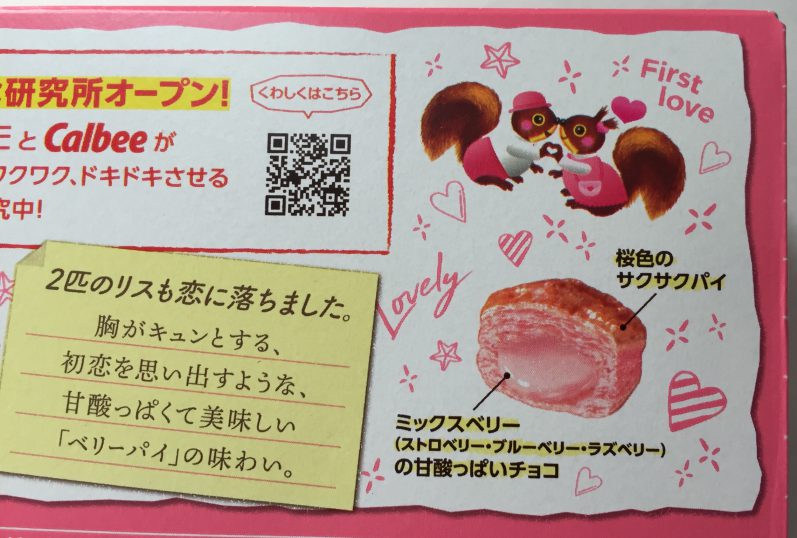 研究所オープン!
くわしくはこちら
とCalbeeが
クワク、ドキドキさせる
中!
First
love
2匹のリスも恋に落ちました。
胸がキュンとする、
初恋を思い出すような、
甘酸っぱくて美味しい
「ベリーパイ」の味わい。
Lovely
桜色の
サクサクパイ
ミックスベリー
(ストロベリー・ブルーベリー・ラズベリー)
の甘酸っぱいチョコ